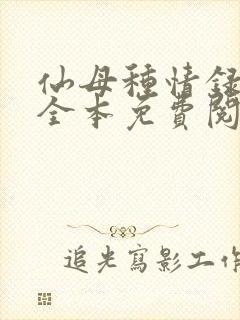 仙母種情録
全本免費閱
追光寫影工作